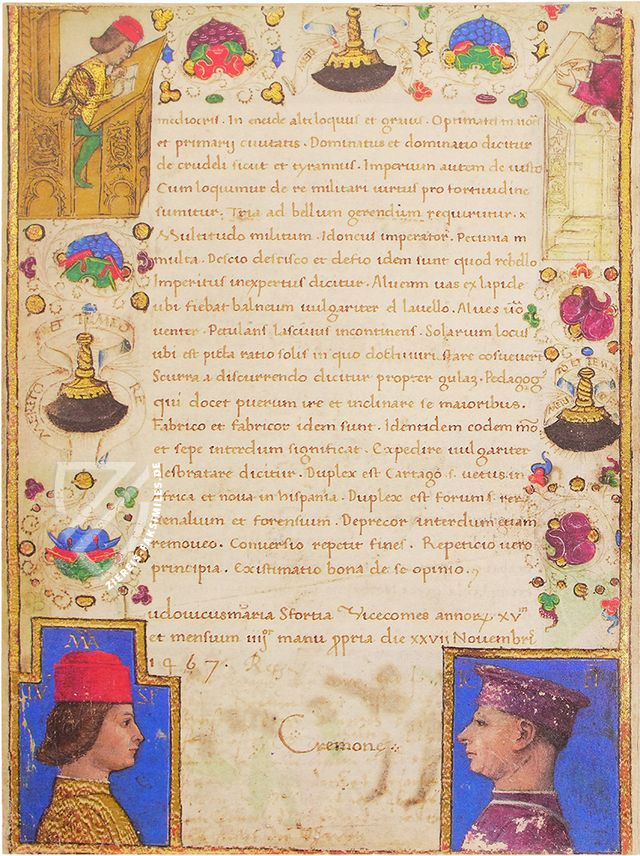 MERITO ET TEMPORE
mediocris. In encide altiloquus et gravis. Optimates maior
et primarij civitatis. Dominatus et dominatio dicitur
de crudeli sicut et tyrannus. Imperium autem de iusto
Cum loquimur de re militari virtus pro fortitudine
sumitur. Tria ad bellum gerendum requiruntur. x
Multitudo militum. Idoneus imperator. Pecunia m
multa. Descio descisco et defio idem sunt quod rebello
Imperitus inexpertus dicitur. Alveum vas ex lapide
ubi fiebat balneum vulgariter el lavello. Alves
venter. Petulans lascivus incontinens. Solarium locus
ubi est picta ratio solis in quo docti viri stare consueverant
Scurra a discurrendo dicitur propter gulam. Pedagog
qui docet puerum ire et inclinare se maioribus.
Fabrico et fabricor idem sunt. Identidem eodem mō
et sepe interdum significat. Expedire vulgariter
desbratare dicitur. Duplex est Cartago s. vetus in
africa et nova in hispania. Duplex est forum s. rerū
venalium et forensium. Deprecor interdum etiam
removeo. Conversio repetit fines. Repeticio vero
principia. Existimatio bona de se opinio.
udovicus maria Sfortia Vicecomes annorum xv
et mensium iiij manu ppria die xxvii Novembri
1467.
Cremone
MA
LV SF
ZIEREIS-FAKSIMILES.DE